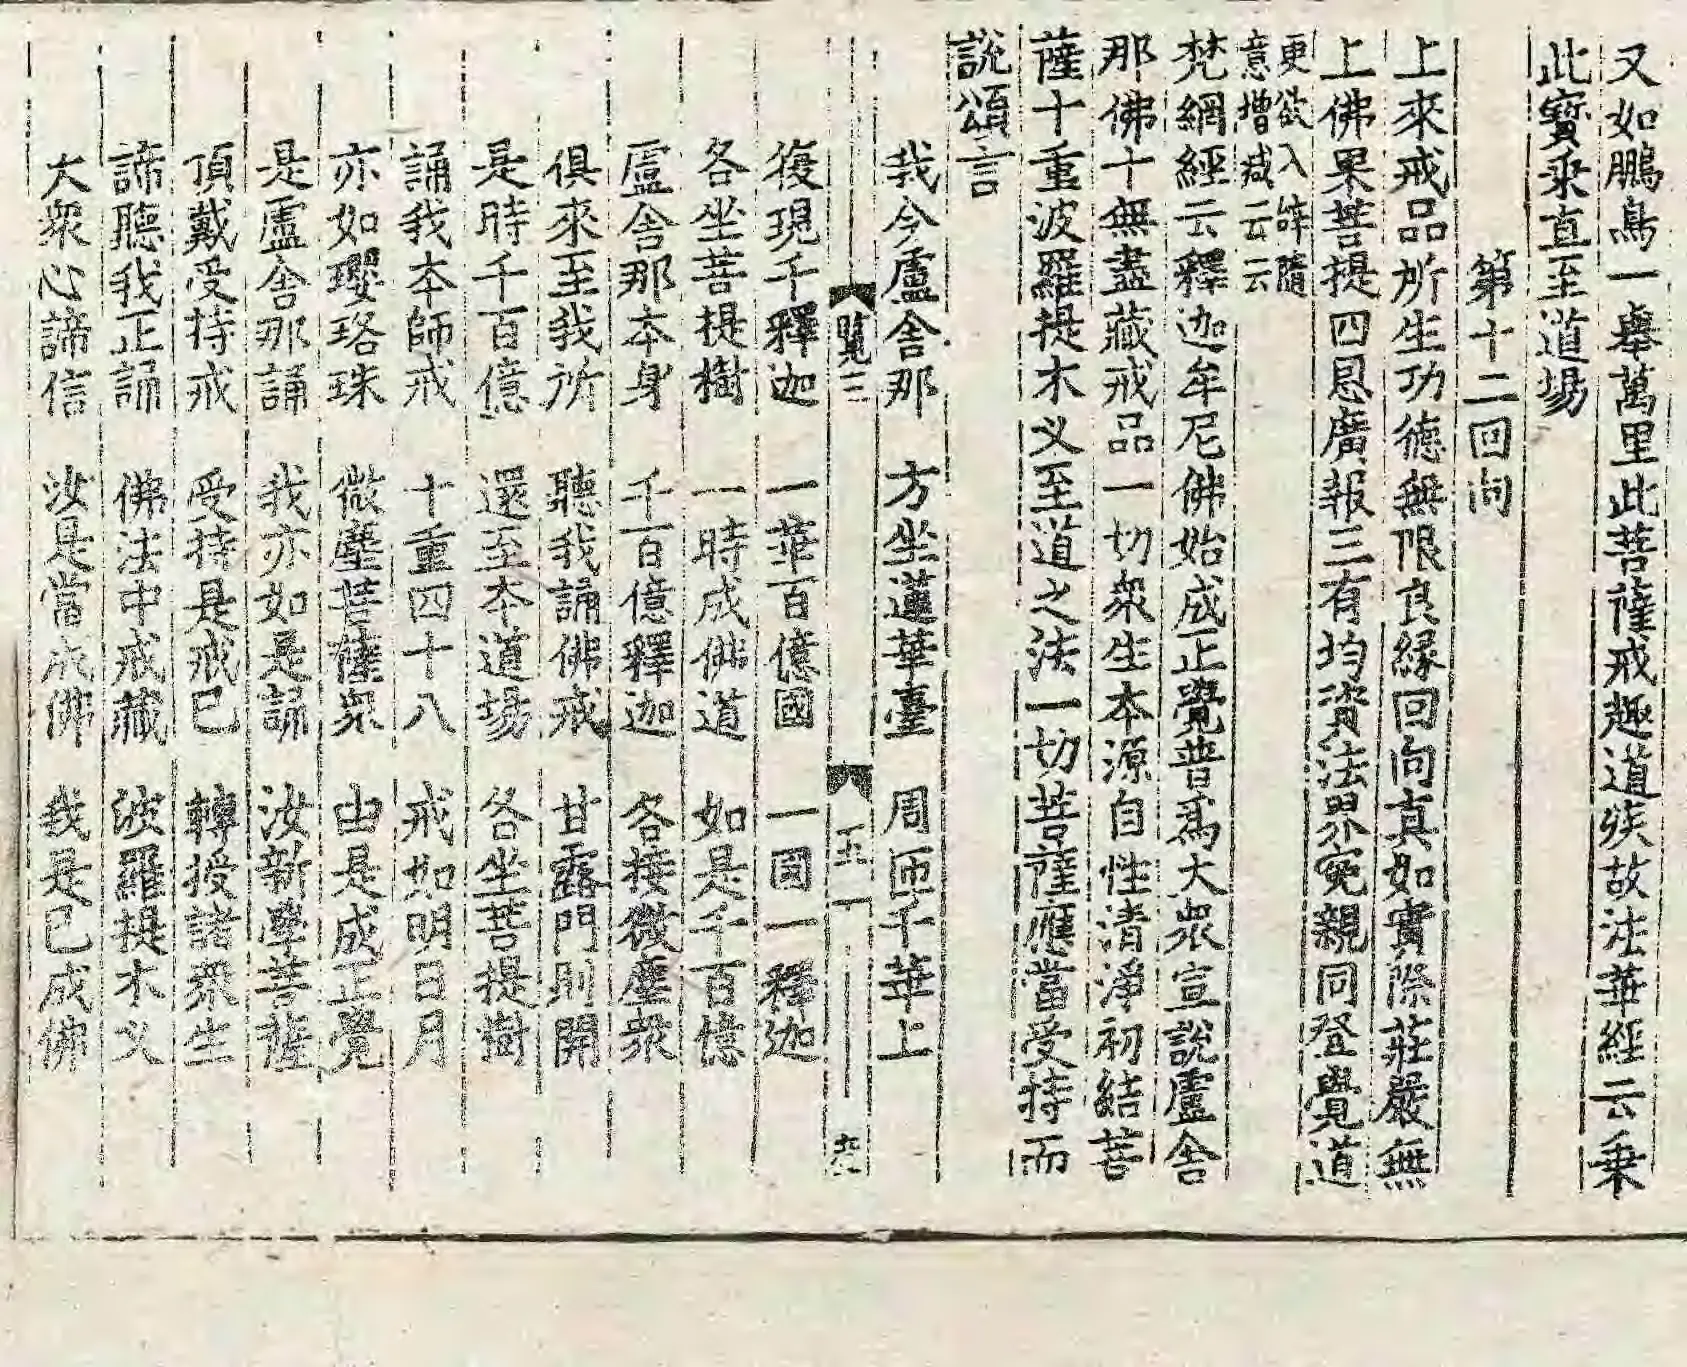 又如鵬鳥一舉萬里此菩薩戒趣道疾故法華經云乗
此寳乘直至道場
第十二回向
上來戒品所生功德無限良緣回向真如實際莊嚴無
上佛果菩提四恩廣報三有均資法界冤親同登覺道
更欲入辞隨
意增减云云
梵網經云釋迦牟尼佛始成正覺普爲大衆宣說盧舍
那佛十無盡藏戒品一切衆生本源自性清淨初結菩
薩十重波羅提木义至道之法一切菩薩應當受持而
說頌言
我今盧舍那 方坐蓮華臺 周匝千華上
覽三 五丁 六
復現千釋迦 一華百億國 一國一釋迦
各坐菩提樹 一時成佛道 如是千百億
盧舍那本身 千百億釋迦 各接微塵衆
俱來至我所 聽我誦佛戒 甘露門則開
是時千百億 還至本道場 各坐菩提樹
誦我本師戒 十重四十八 戒如明日月
亦如瓔珞珠 微塵菩薩衆 由是成正覺
是盧舍那誦 我亦如是誦 汝新學菩薩
頂戴受持戒 受持是戒已 轉授諸衆生
諦聽我正誦 佛法中戒藏 波羅提木义
大衆心諦信 汝是當成佛 我是已成佛